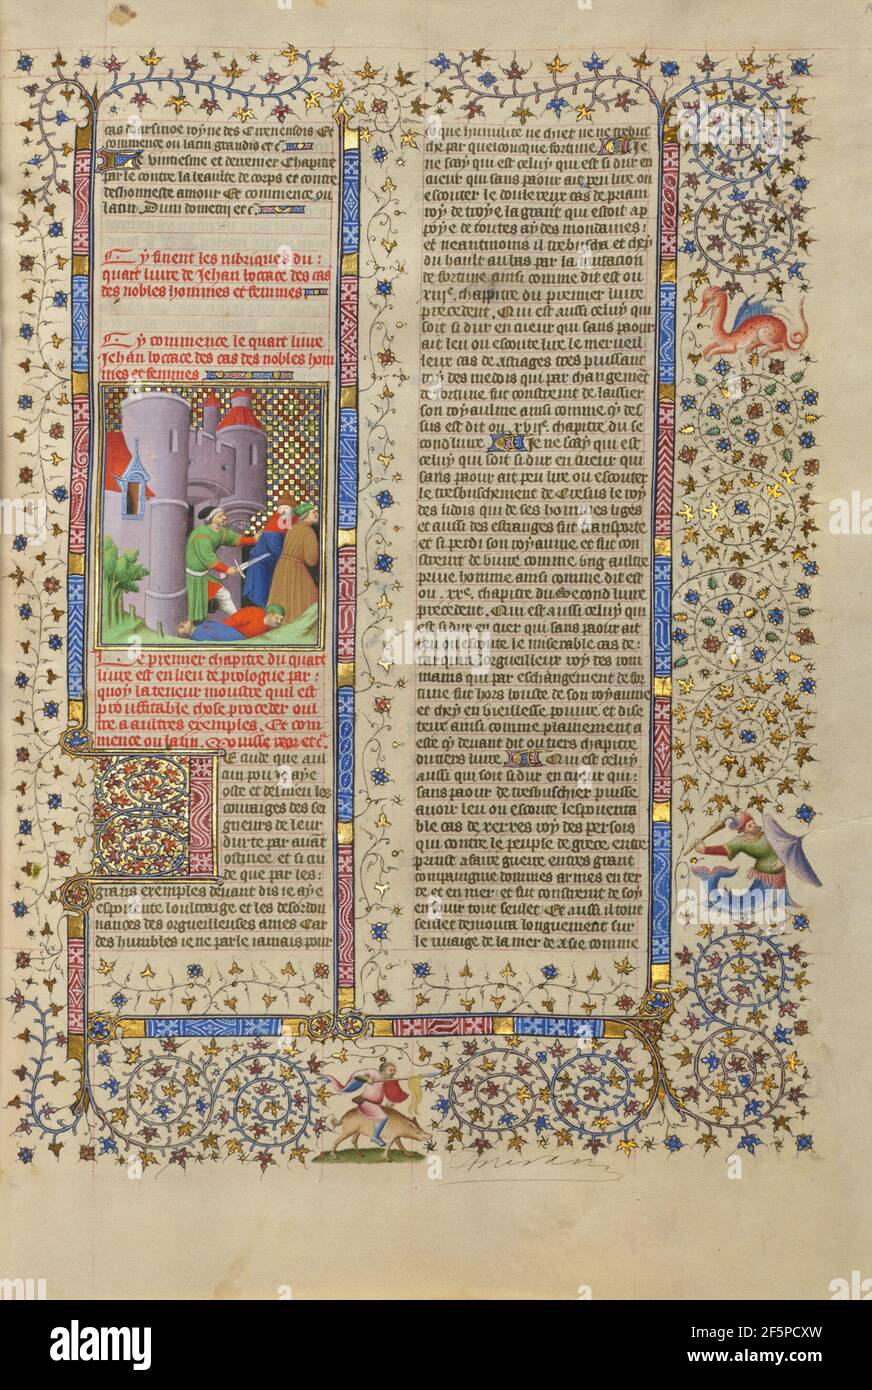 cas darsinoe royne des Cirenensois Et
commence ou latin grandis et c̃.
Le vintiesme et derrenier Chapitre
parle contre la beaulte de corps et contre
deshonneste amour Et commence ou
latin. Dum demetrius et c̃.
Cy finent les rubriques du
quart livre de Jehan bocace des cas
des nobles hommes et femmes
Cy commence le quart livre
Jehan bocace des cas des nobles hom
mes et femmes
Le premier chapitre du quart
livre est en lieu de prologue par
quoy la teneur moustre quil est
prouffitable chose proceder oul
tre a aultres exemples. Et com
mence ou latin.
E cuide que aul
cun pou iaye
oste et demeu les
couraiges des sei
gneurs de leur
durte par avant
obstinee et si cui
de que par les
grans exemples devant dis ie aye
espouente loultraige et les desordon
nances des orgueilleuses ames Car
des humbles ie ne parle iamais pour
ce que humilite ne chiet ne ne trebus
che par quelconque fortune. Je
ne scay qui est celuy qui est si dur en
cueur qui sans paour ait peu lire ou
escouter le douloreux cas de priam
roy de troye la grant qui estoit ap
poye de toutes aydes mondaines:
et neantmoins il trebuscha et chey
du hault au bas par la mutacion
de fortune ainsi comme dit est ou
xiiie. chappitre du premier livre
precedent. Qui est aussi celuy qui
soit si dur en cueur qui sans paour
ait leu ou escoute lire le merveil
leux cas de astiages tres puissant
roy des medois qui par changement
de fortune fut constreint de laissier
son royaulme ainsi comme
dessus est dit ou .xviie. chapitre du se
cond livre. Je ne scay qui est
celuy qui soit si dur en cueur qui
sans paour ait peu lire ou escouter
le tresbuschement de Cresus le roy
des lidois qui de ses hommes liges
et aussi des estranges fut transporte
et si perdi son royaume et fut con
streint de vivre comme ung aultre
prive homme ainsi comme dit est
ou .xxe. chapitre du Second livre
precedent. Qui est aussi celuy qui
est si dur en cuer qui sans paour ait
leu ou escoute le miserable cas de
tarquin lorgueilleux roy des rom
mains qui par eschangement de for
tune fut hors boute de son royaume
et chey en vieillesse povre et dise
teux ainsi comme plainement a
este cy devant dit ou tiers chapitre
du tiers livre. Qui est celuy
aussi qui soit si dur en cueur qui
sans paour de tresbuschier puisse
avoir leu ou escoute lespouenta
ble cas de xerxes roy des persois
qui contre le peuple de grece entre
print a faire guerre en tres grant
compaignie dommes armes en ter
re et en mer: et fut constreint de soy
enfouir tout seulet: Et aussi il tout
seulet demoura longuement sur
le rivaige de la mer de asie comme
a
alamy
Image ID: 2F5PCXW
www.alamy.com